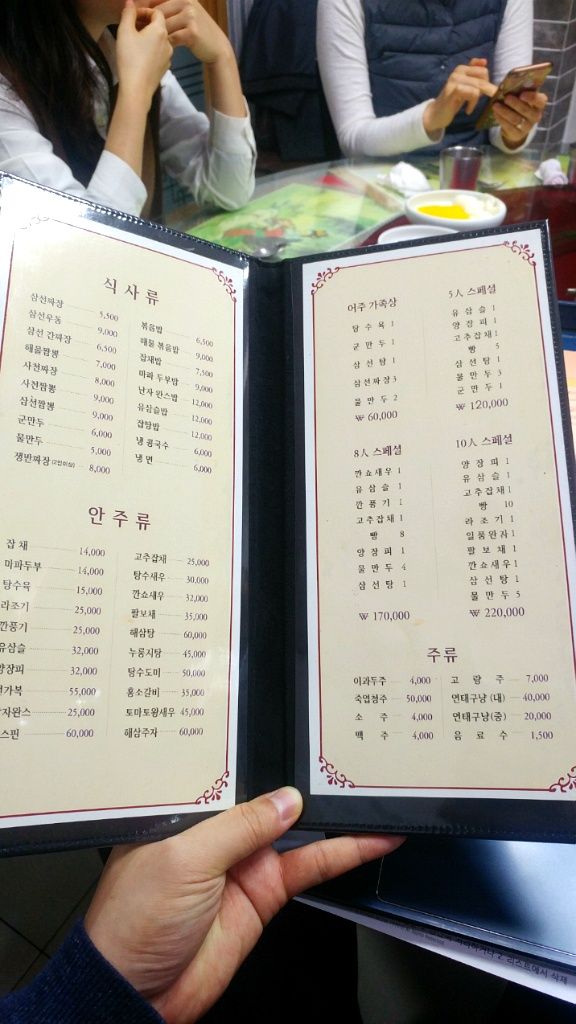 식사류
삼선짜장 5,500
삼선우동 9,000
삼선 간짜장 6,500
해물짬뽕 7,000
사천짜장 8,000
사천짬뽕 9,000
삼선짬뽕 9,000
군만두 6,000
물만두 5,000
쟁반짜장 (2인이상) 8,000
볶음밥 6,500
해물 볶음밥 9,000
잡채밥 7,500
마파 두부밥 9,000
난자 완스밥 12,000
유삼슬밥 12,000
잡탕밥 12,000
냉 콩국수 6,000
냉 면 6,000
안주류
잡 채 14,000
마파두부 14,000
탕수육 15,000
라조기 25,000
깐풍기 25,000
유삼슬 32,000
양장피 32,000
가복 55,000
자완스 25,000
스핀 60,000
고추잡채 25,000
탕수새우 30,000
깐쇼새우 32,000
팔보채 35,000
해삼탕 60,000
누룽지탕 45,000
탕수도미 50,000
홍소갈비 35,000
토마토왕새우 45,000
해삼주자 60,000
어주 가족상
탕 수 육 1
군 만 두 1
삼 선 탕 1
삼선짜장3
물 만 두 2
₩ 60,000
5人 스페셜
유 삼 슬 1
양 장 피 1
고추잡채1
빵 5
삼 선 탕 1
물 만 두 3
군 만 두 1
₩ 120,000
8人 스페셜
깐쇼새우1
유 삼 슬 1
깐 풍 기 1
고추잡채1
빵 8
양 장 피 1
물 만 두 4
삼 선 탕 1
₩ 170,000
10人 스페셜
양 장 피 1
유 삼 슬 1
고추잡채1
빵 10
라 조 기 1
일품완자1
팔 보 채 1
깐쇼새우1
삼 선 탕 1
물 만 두 5
₩ 220,000
주류
이과두주 4,000
죽엽청주 50,000
소 주 4,000
맥 주 4,000
고 량 주 7,000
연태구냥(대) 40,000
연태구냥(중) 20,000
음 료 수 1,500
리스트에서 삭제